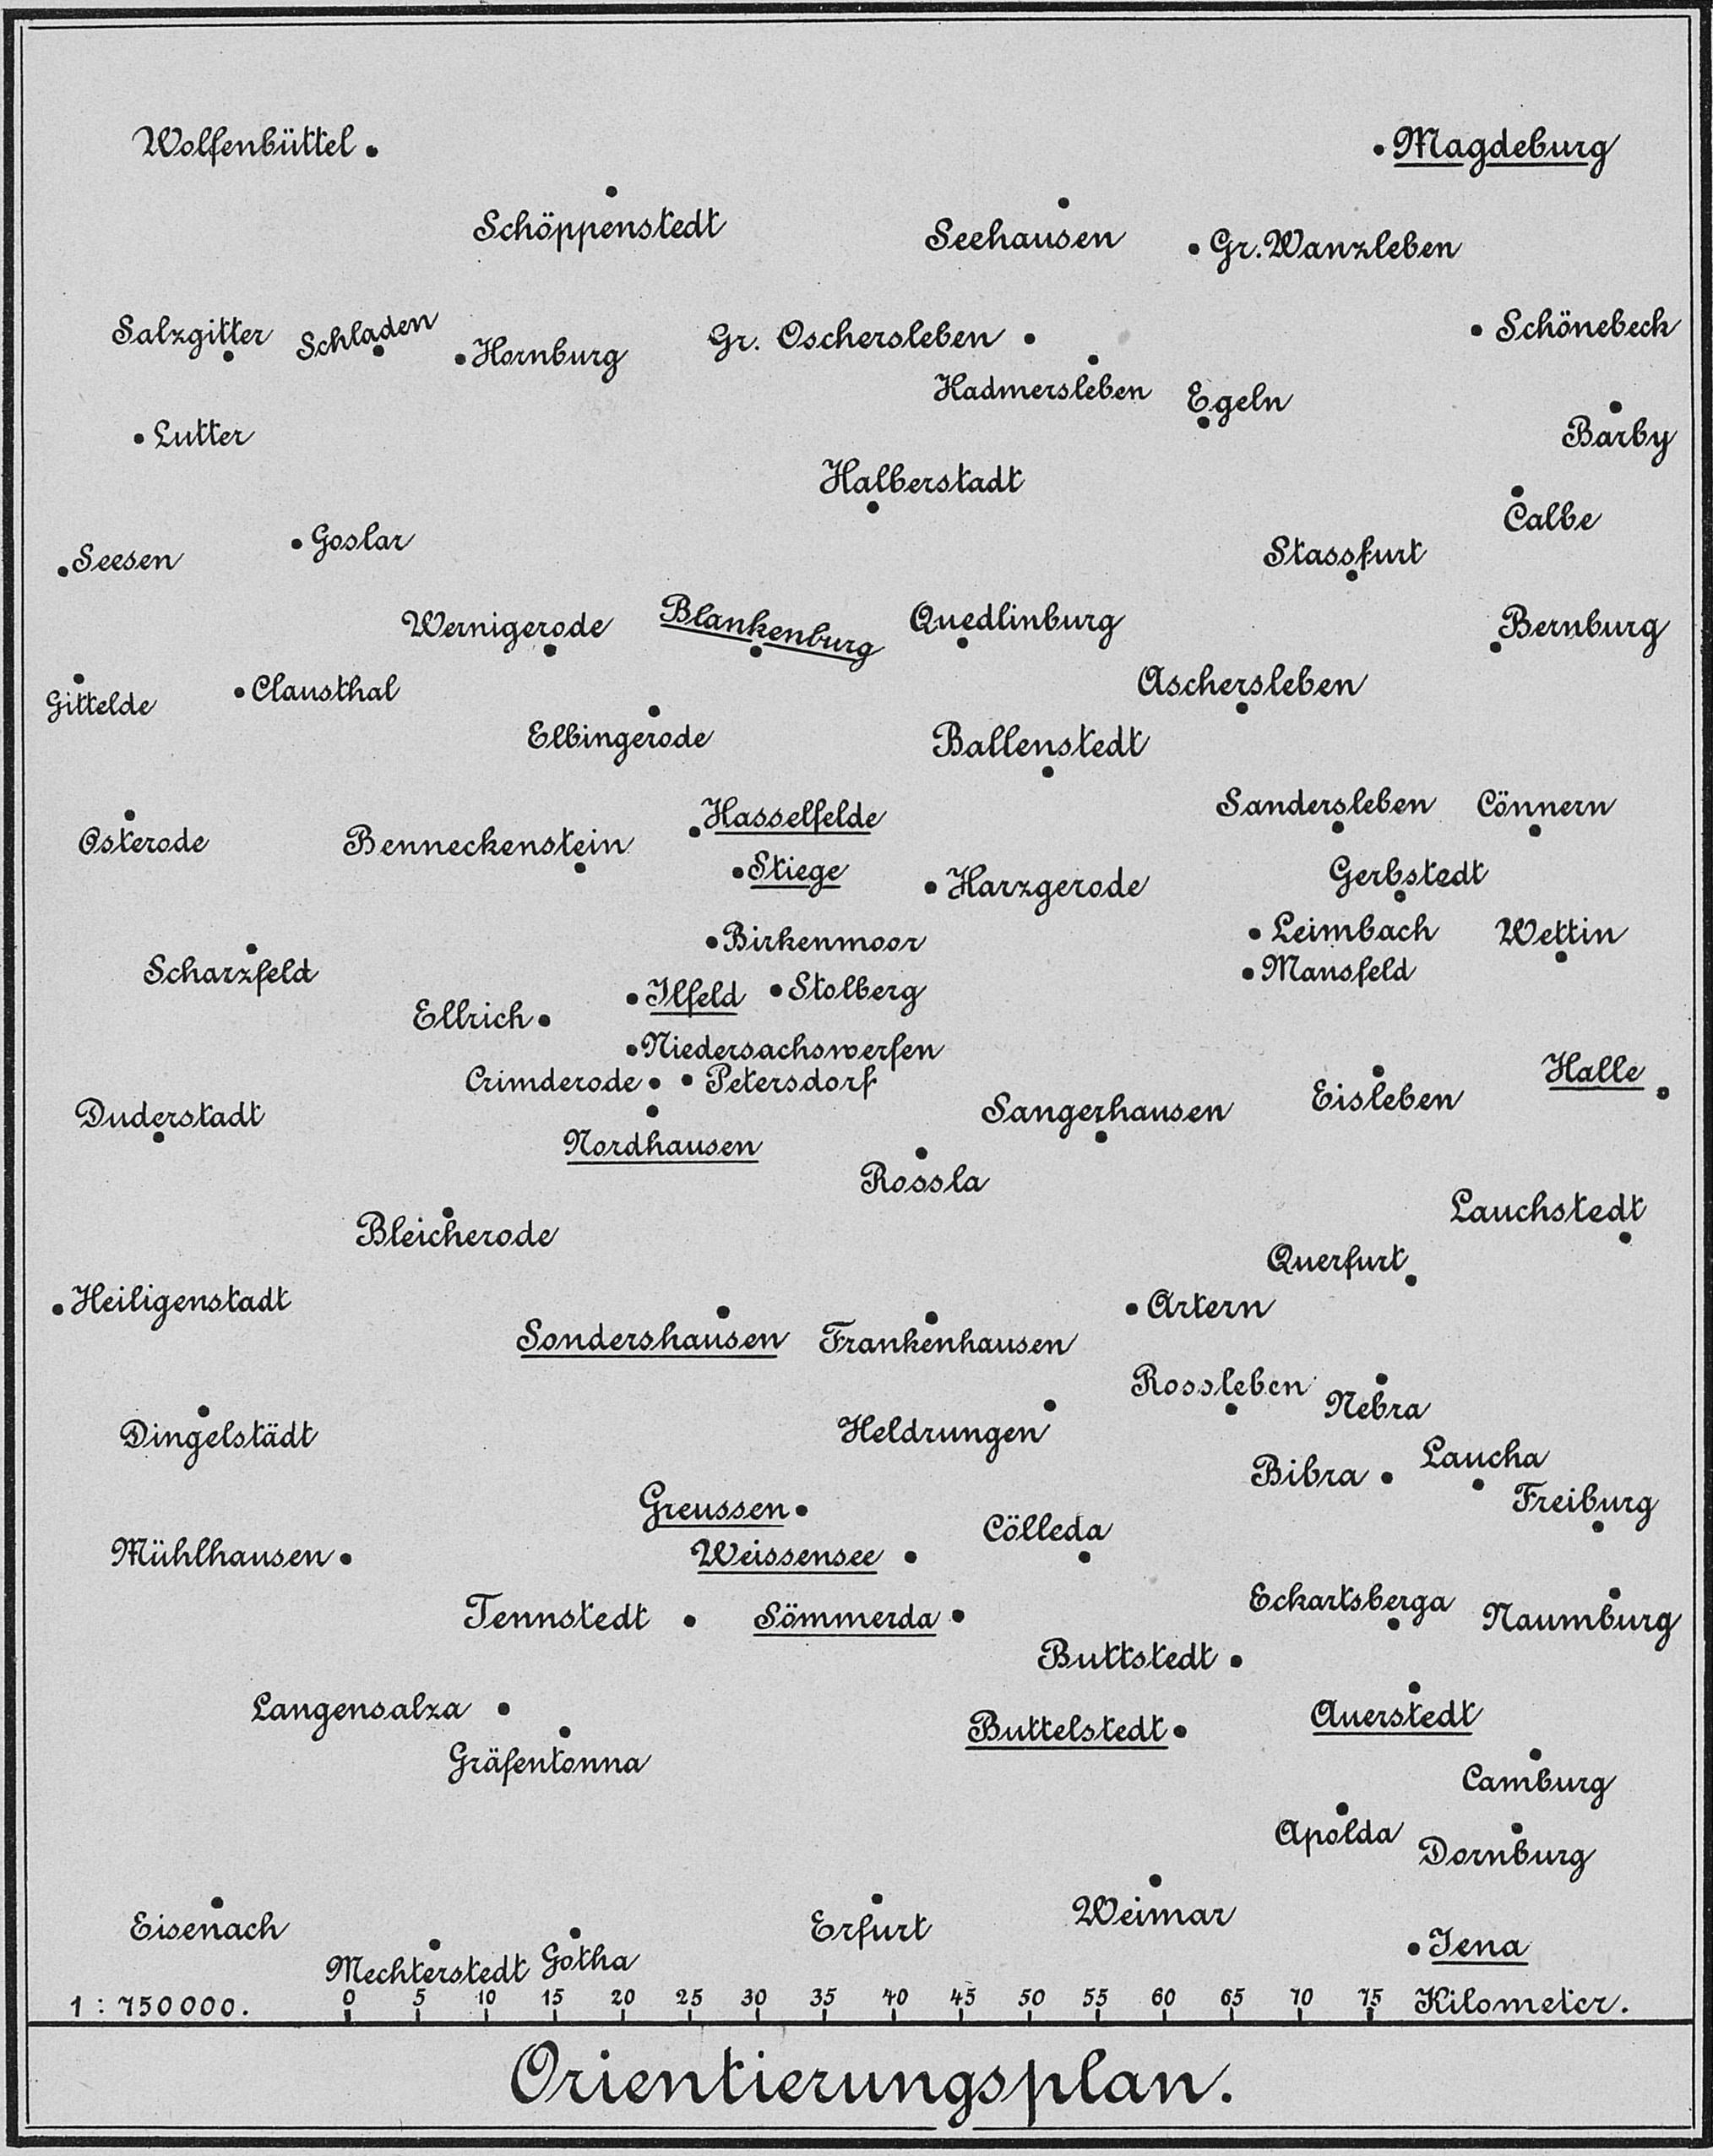 Wolfenbüttel
Magdeburg
Schöppenstedt
Seehausen
Gr. Wanzleben
Salzgitter
Schladen
Hornburg
Gr. Oschersleben
Schönebeck
Hadmersleben
Egeln
Lutter
Barby
Halberstadt
Calbe
Goslar
Seesen
Stassfurt
Wernigerode
Blankenburg
Quedlinburg
Bernburg
Gittelde
Clausthal
Aschersleben
Elbingerode
Ballenstedt
Hasselfelde
Sandersleben
Cönnern
Osterode
Benneckenstein
Stiege
Harzgerode
Gerbstedt
Birkenmoor
Leimbach
Wettin
Scharzfeld
Mansfeld
Ilfeld
Stolberg
Ellrich
Niedersachswerfen
Crimderode
Petersdorf
Halle
Duderstadt
Sangerhausen
Eisleben
Nordhausen
Rossla
Lauchstedt
Bleicherode
Querfurt
Heiligenstadt
Artern
Sondershausen
Frankenhausen
Rossleben
Nebra
Dingelstädt
Heldrungen
Laucha
Bibra
Greussen
Freiburg
Cölleda
Mühlhausen
Weissensee
Eckartsberga
Tennstedt
Sömmerda
Naumburg
Buttstedt
Langensalza
Buttelstedt
Auerstedt
Gräfentonna
Camburg
Apolda
Dornburg
Eisenach
Erfurt
Weimar
Jena
Mechterstedt
Gotha
1 : 750000. 0 5 10 15 20 25 30 35 40 45 50 55 60 65 70 75 Kilometer.
Orientierungsplan.